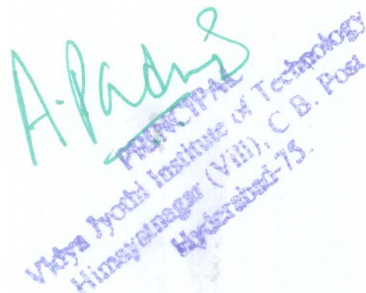 A. Padma
PRINCIPAL
Vidya Jyothi Institute of Technology
Himayatnagar (Vill), C. B. Post
Hyderabad-75.